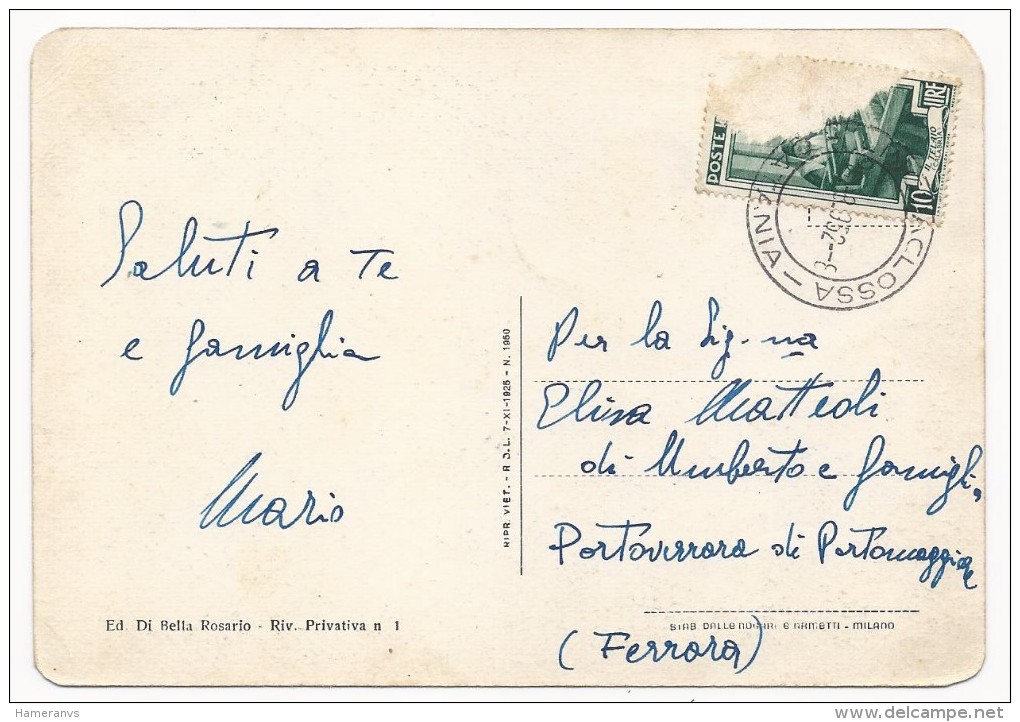 POSTE
10
LIRE
IL TELAIO
Saluti a Te
e famiglia
Mario
Per la Sig.na
Elisa Matteoli
di Umberto e famiglia
Portoverrara di Portomaggiore
(Ferrara)
RIPR. VIET. - R.D.L. 7-XI-1925 - N. 1950
Ed. Di Bella Rosario - Riv. Privativa n 1
STAB. DALLE NOGARE E ARMETTI - MILANO
Hameranvs
www.delcampe.net